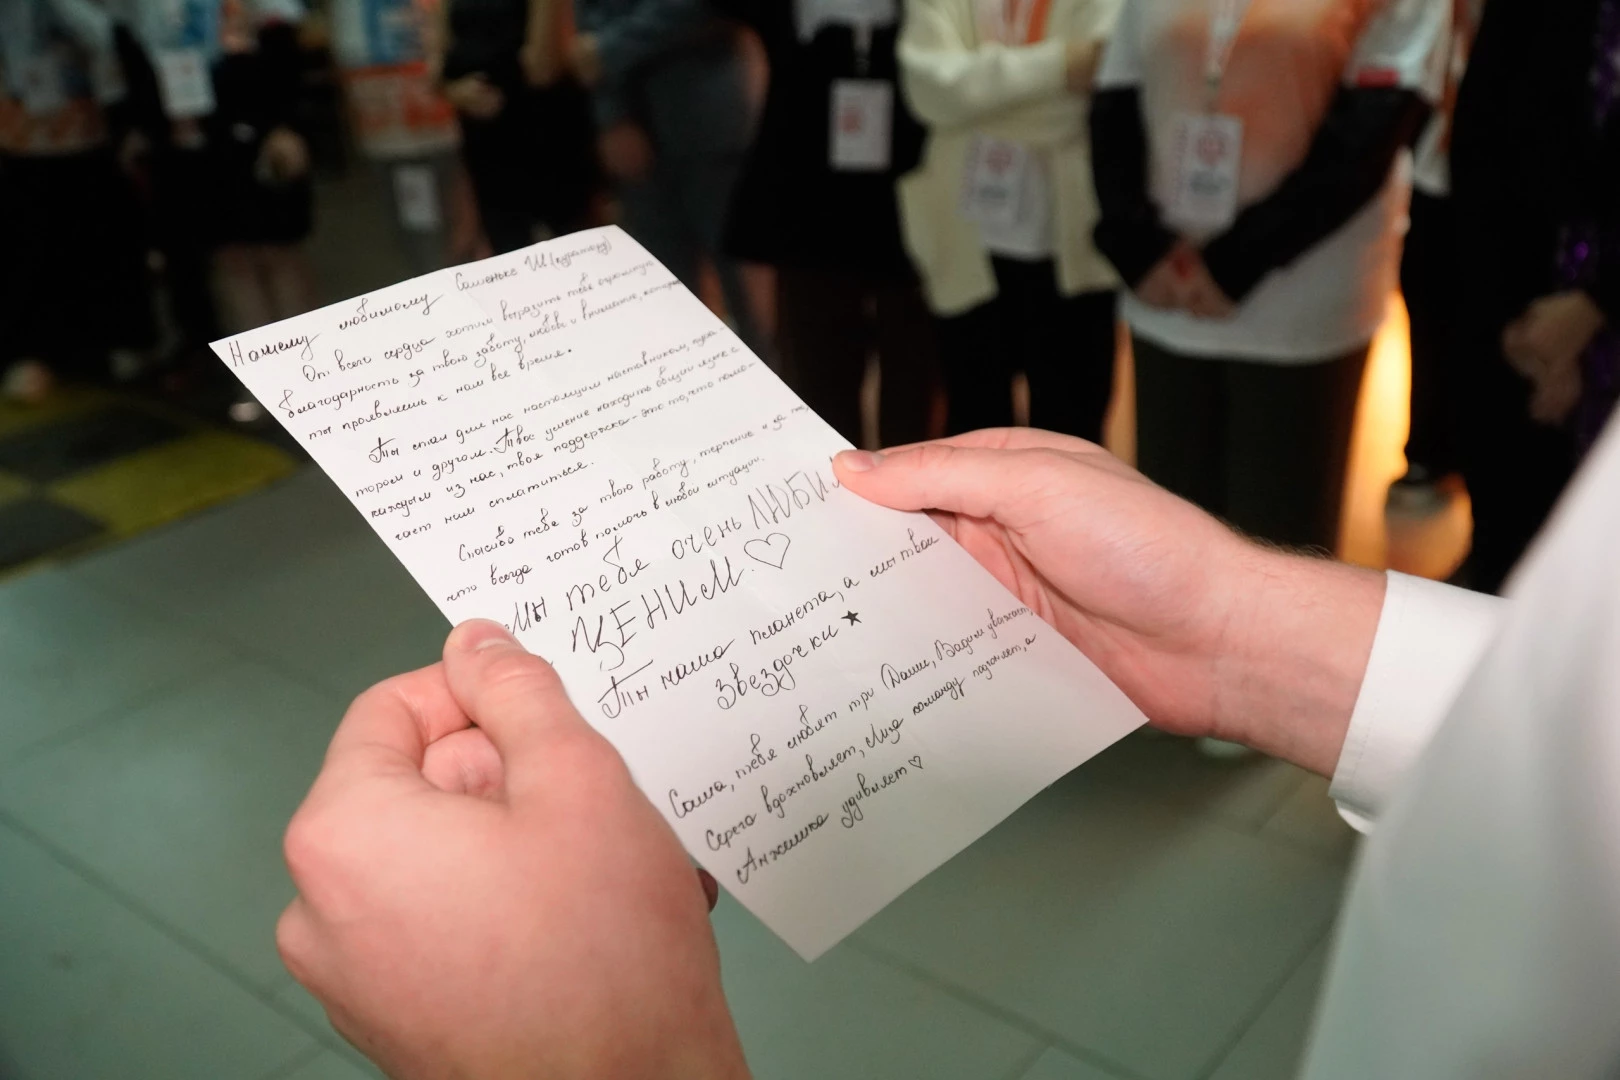 Нашему любимому Сашеньке Ш (куратору)
От всего сердца хотим выразить тебе огромную
благодарность за твою заботу, любовь и внимание, которые
ты проявляешь к нам все время.
Ты стал для нас настоящим наставником, кура-
тором и другом. Твое умение находить общий язык с
каждым из нас, твоя поддержка - это то, что помо-
гает нам сплотиться.
Спасибо тебе за твою работу, терпение и за то,
что всегда готов помочь в любой ситуации.
Мы тебя очень ЛЮБИМ
ЦЕНИМ. ♡
Ты наша планета, а мы твои
звездочки ★
Саша, тебя любят три Даши, Вадим уважает,
Серега вдохновляет, Лиза команду подгоняет, а
Анжелика удивляет ♡